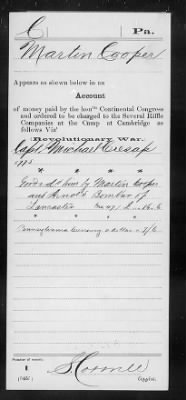 C | Pa.
Martin Cooper
Appears as shown below in an
Account
of money paid by the hon'ble Continental Congress
and ordered to be charged to the Several Rifle
Companies at the Camp at Cambridge as
follows Viz'
Revolutionary War.
Capt. Michael Cresap
1775
by Martin Cooper
and Arnold Bombar of
Lancaster 2 .. 16 .. 6
* * * * *
Pennsylvania Currency a dollar = 7/6
* * * * *
Number of record:
1
Copyist.